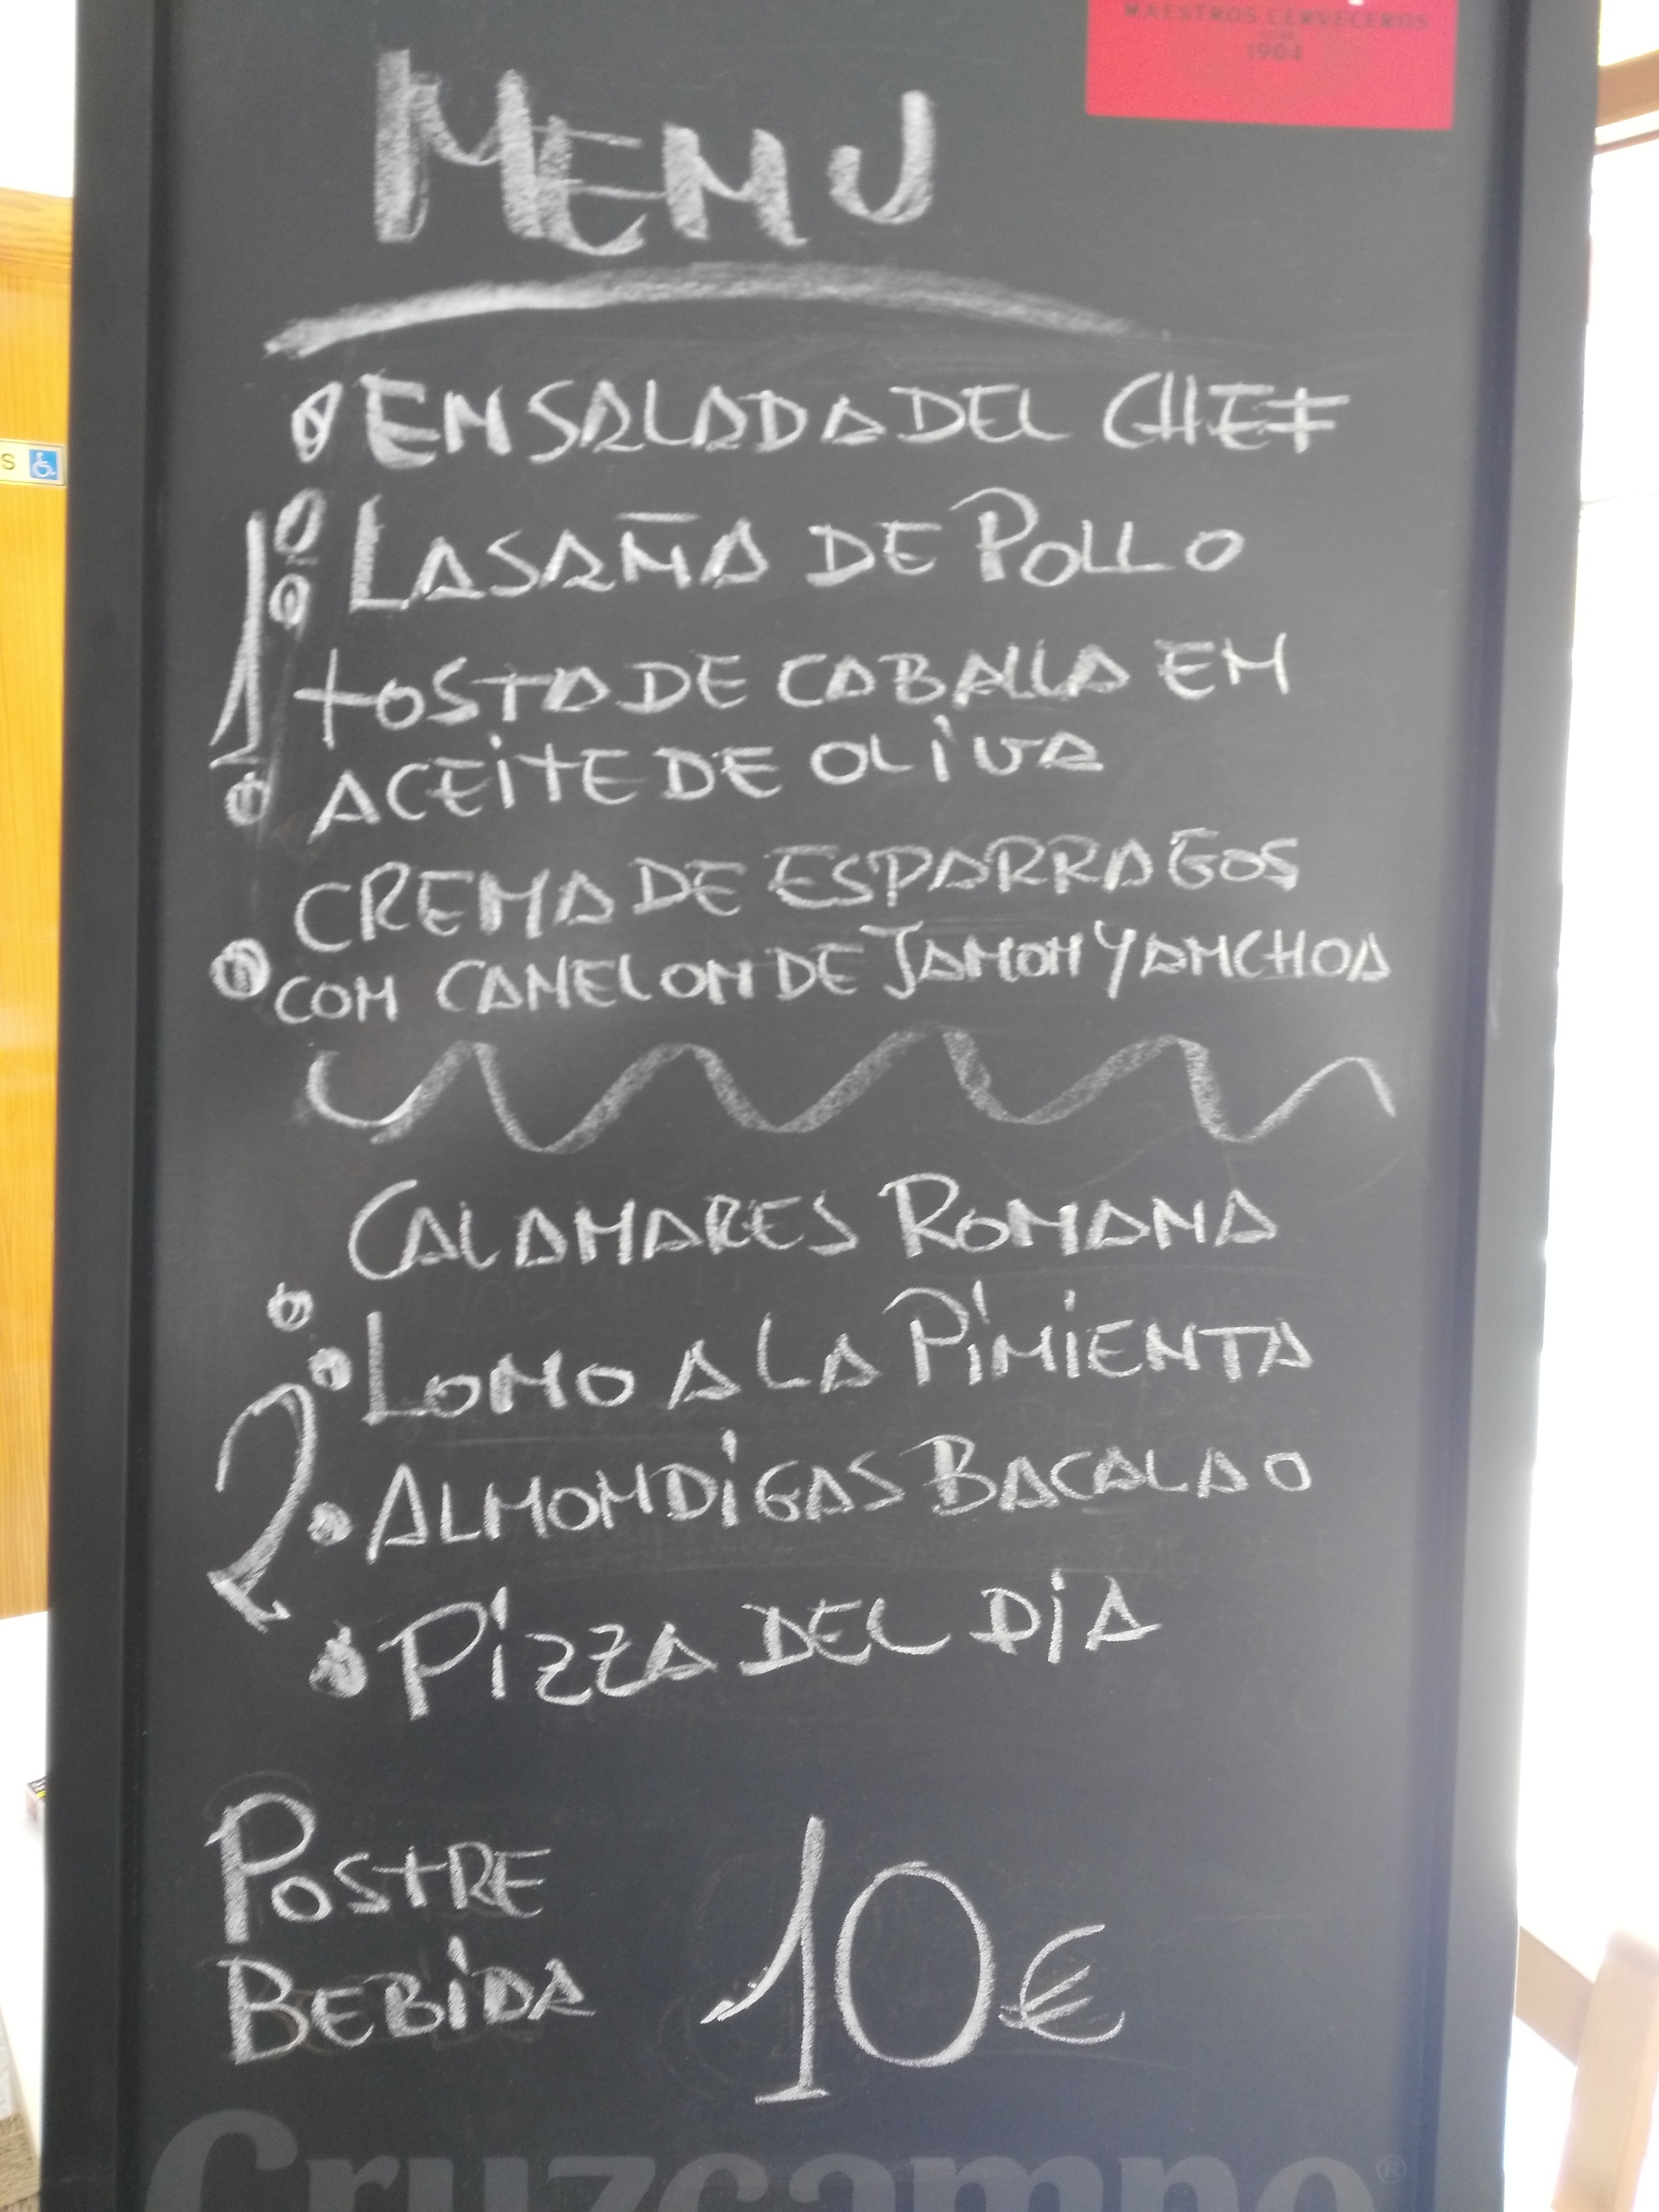 MAESTROS CERVECEROS
1904
MENU
ENSALADA DEL CHEF
1º LASAÑA DE POLLO
TOSTA DE CABALLA EN
ACEITE DE OLIVA
CREMA DE ESPARRAGOS
CON CANELON DE JAMON Y ANCHOA
CALAMARES ROMANA
LOMO A LA PIMIENTA
2º
ALMONDIGAS BACALAO
PIZZA DEL DIA
POSTRE
BEBIDA
10€
Cruzcampo®